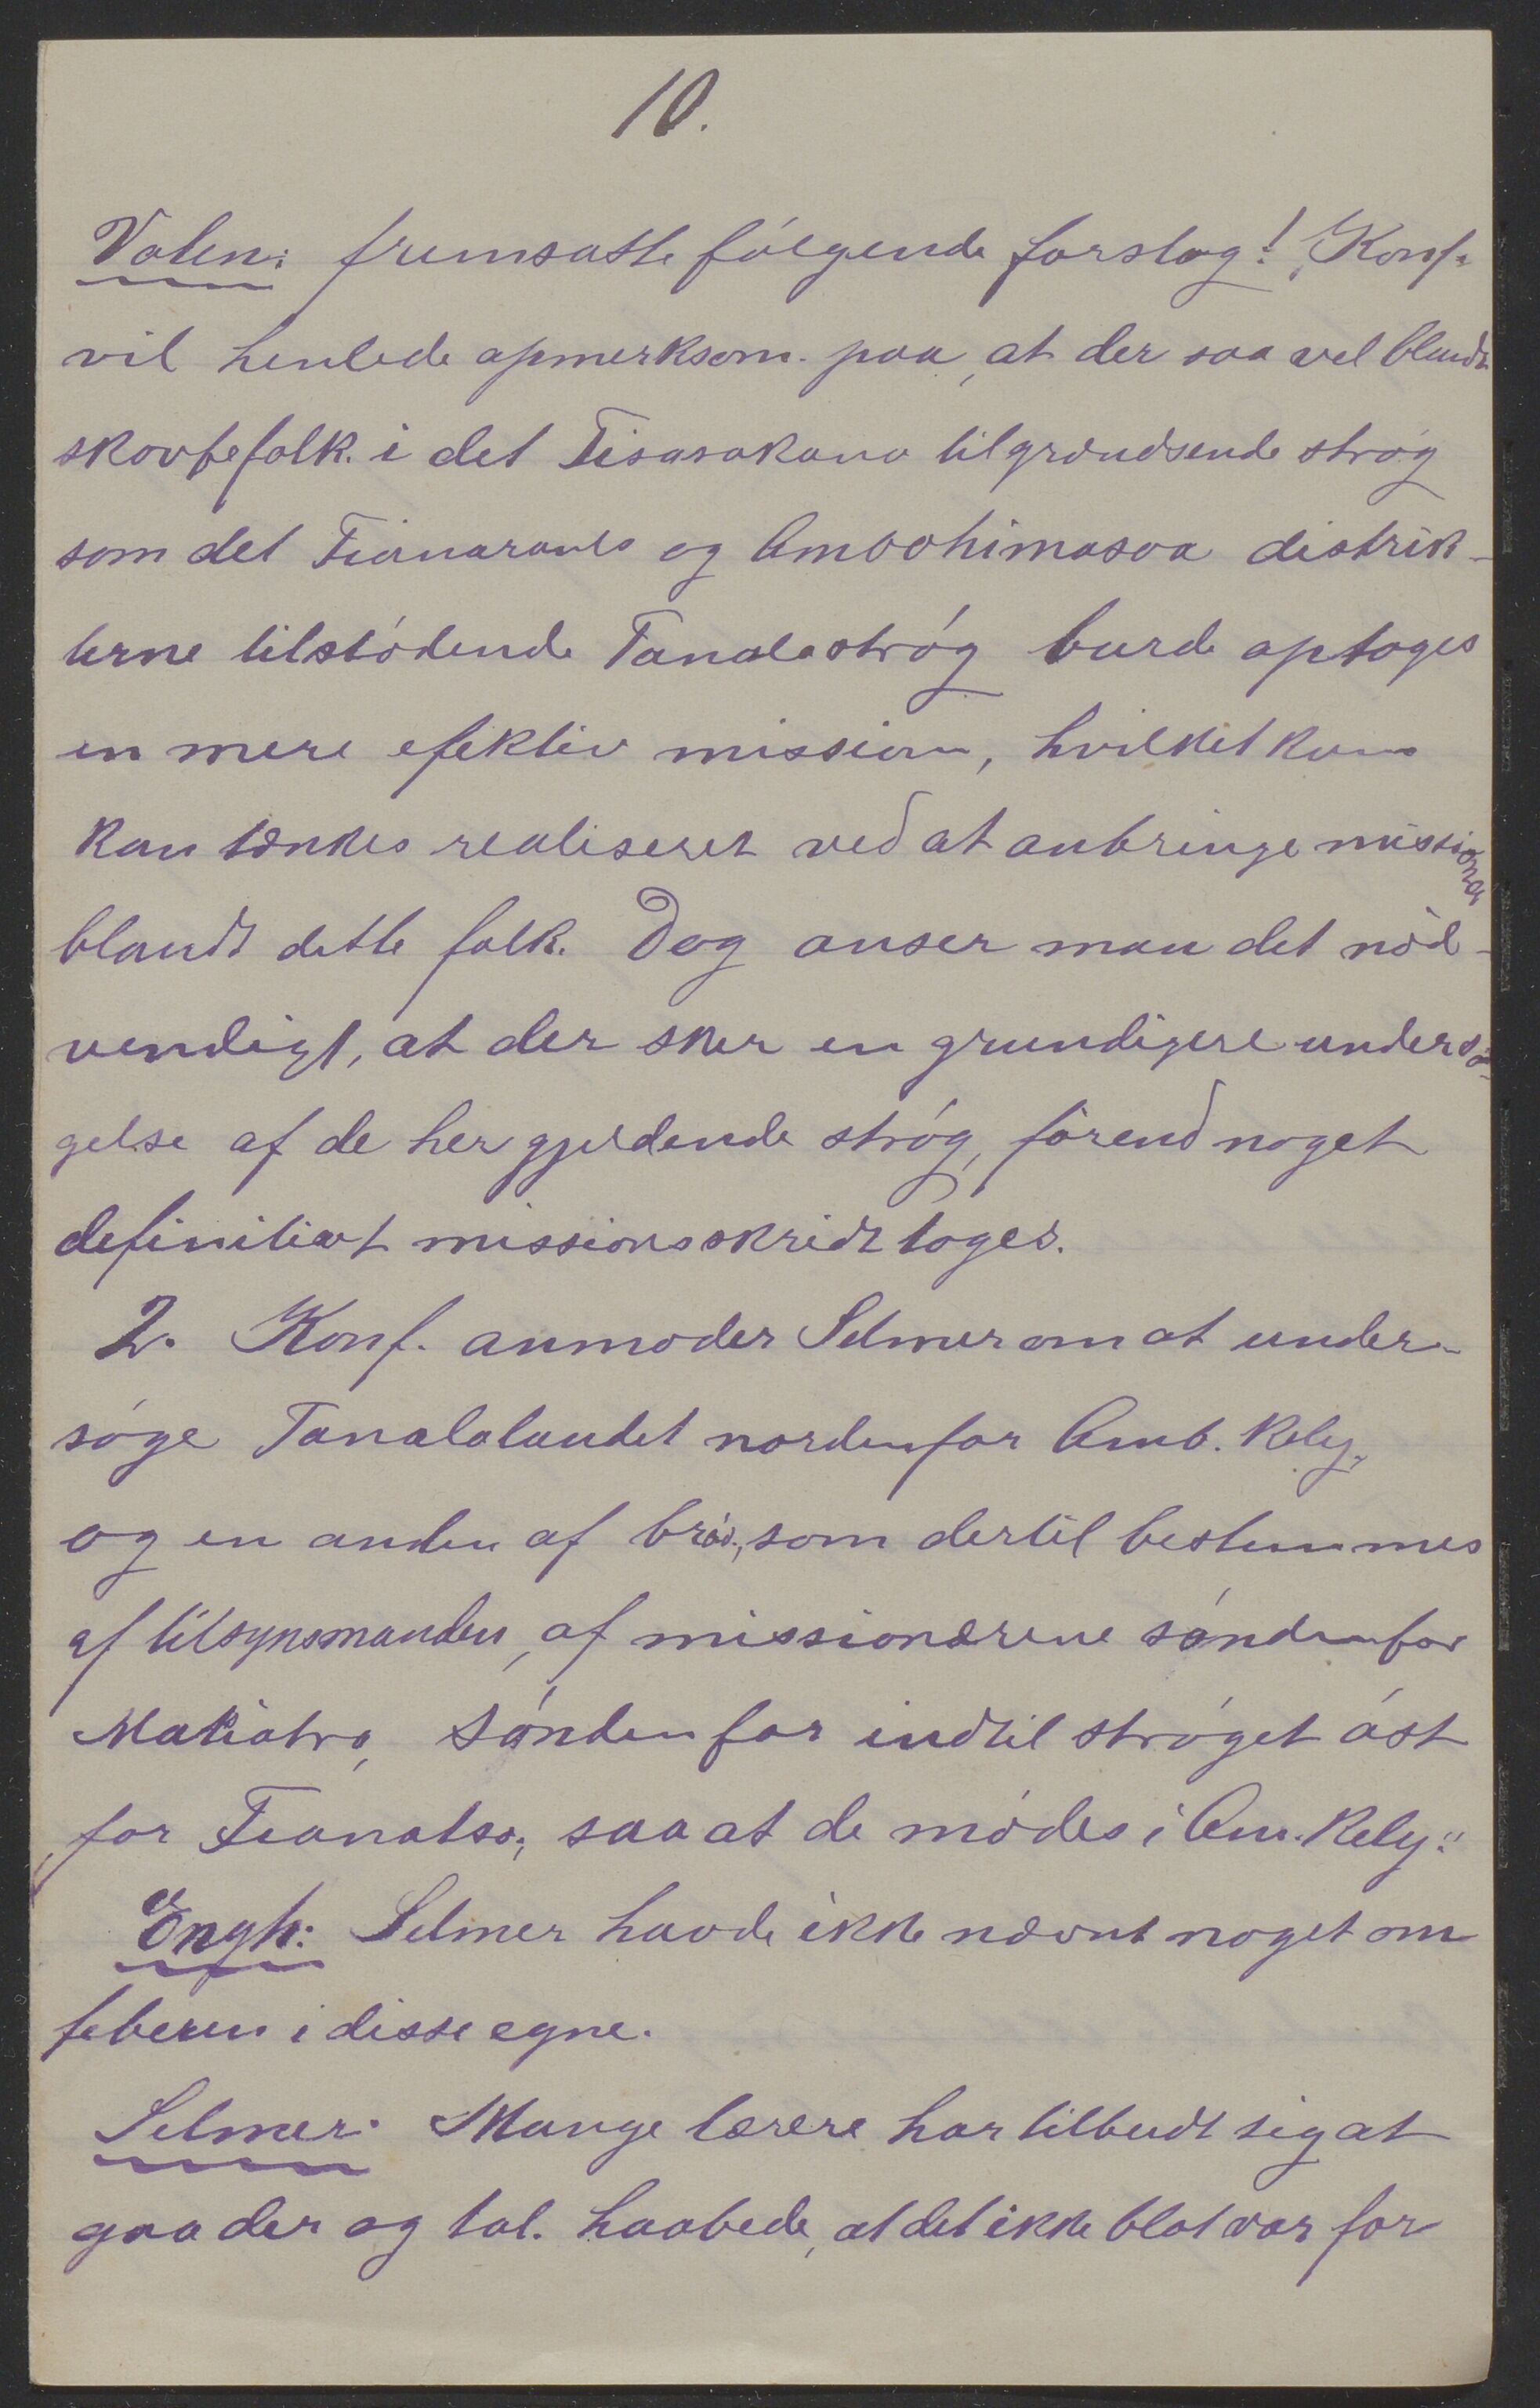 10.
Valen: fremsatte følgende forslag! „Konf.
vil henlede opmerksom. paa, at der saavel blandt
skovbefolk. i det Tisasakana tilgrændsende strøg
som det Fianarants og Ambohimasoa distrik-
terne tilstødende Tanalastrøg burde optages
en mere efektiv mission, hvilket kun
kan tænkes realiseret ved at anbringe missionær
blandt dette folk. Dog anser man det nød-
vendigt, at der sker en grundigere undersø-
gelse af de her gjeldende strøg, førend noget
definitivt missionsskridt toges.
2. Konf. anmoder Selmer om at under-
søge Tanalalandet nordenfor Amb. Kely,
og en anden af brød., som dertil bestemmes
af tilsynsmanden, af missionærene søndenfor
Matiatra, søndenfor indtil strøget øst
for Fianatso, saa at de mødes i Am. Kely."
Engh: Selmer havde ikke nævnt noget om
feberen i disse egne.
Selmer: Mange lærere har tilbudt sig at
gaa der og tal. haabede, at det ikke blot var for